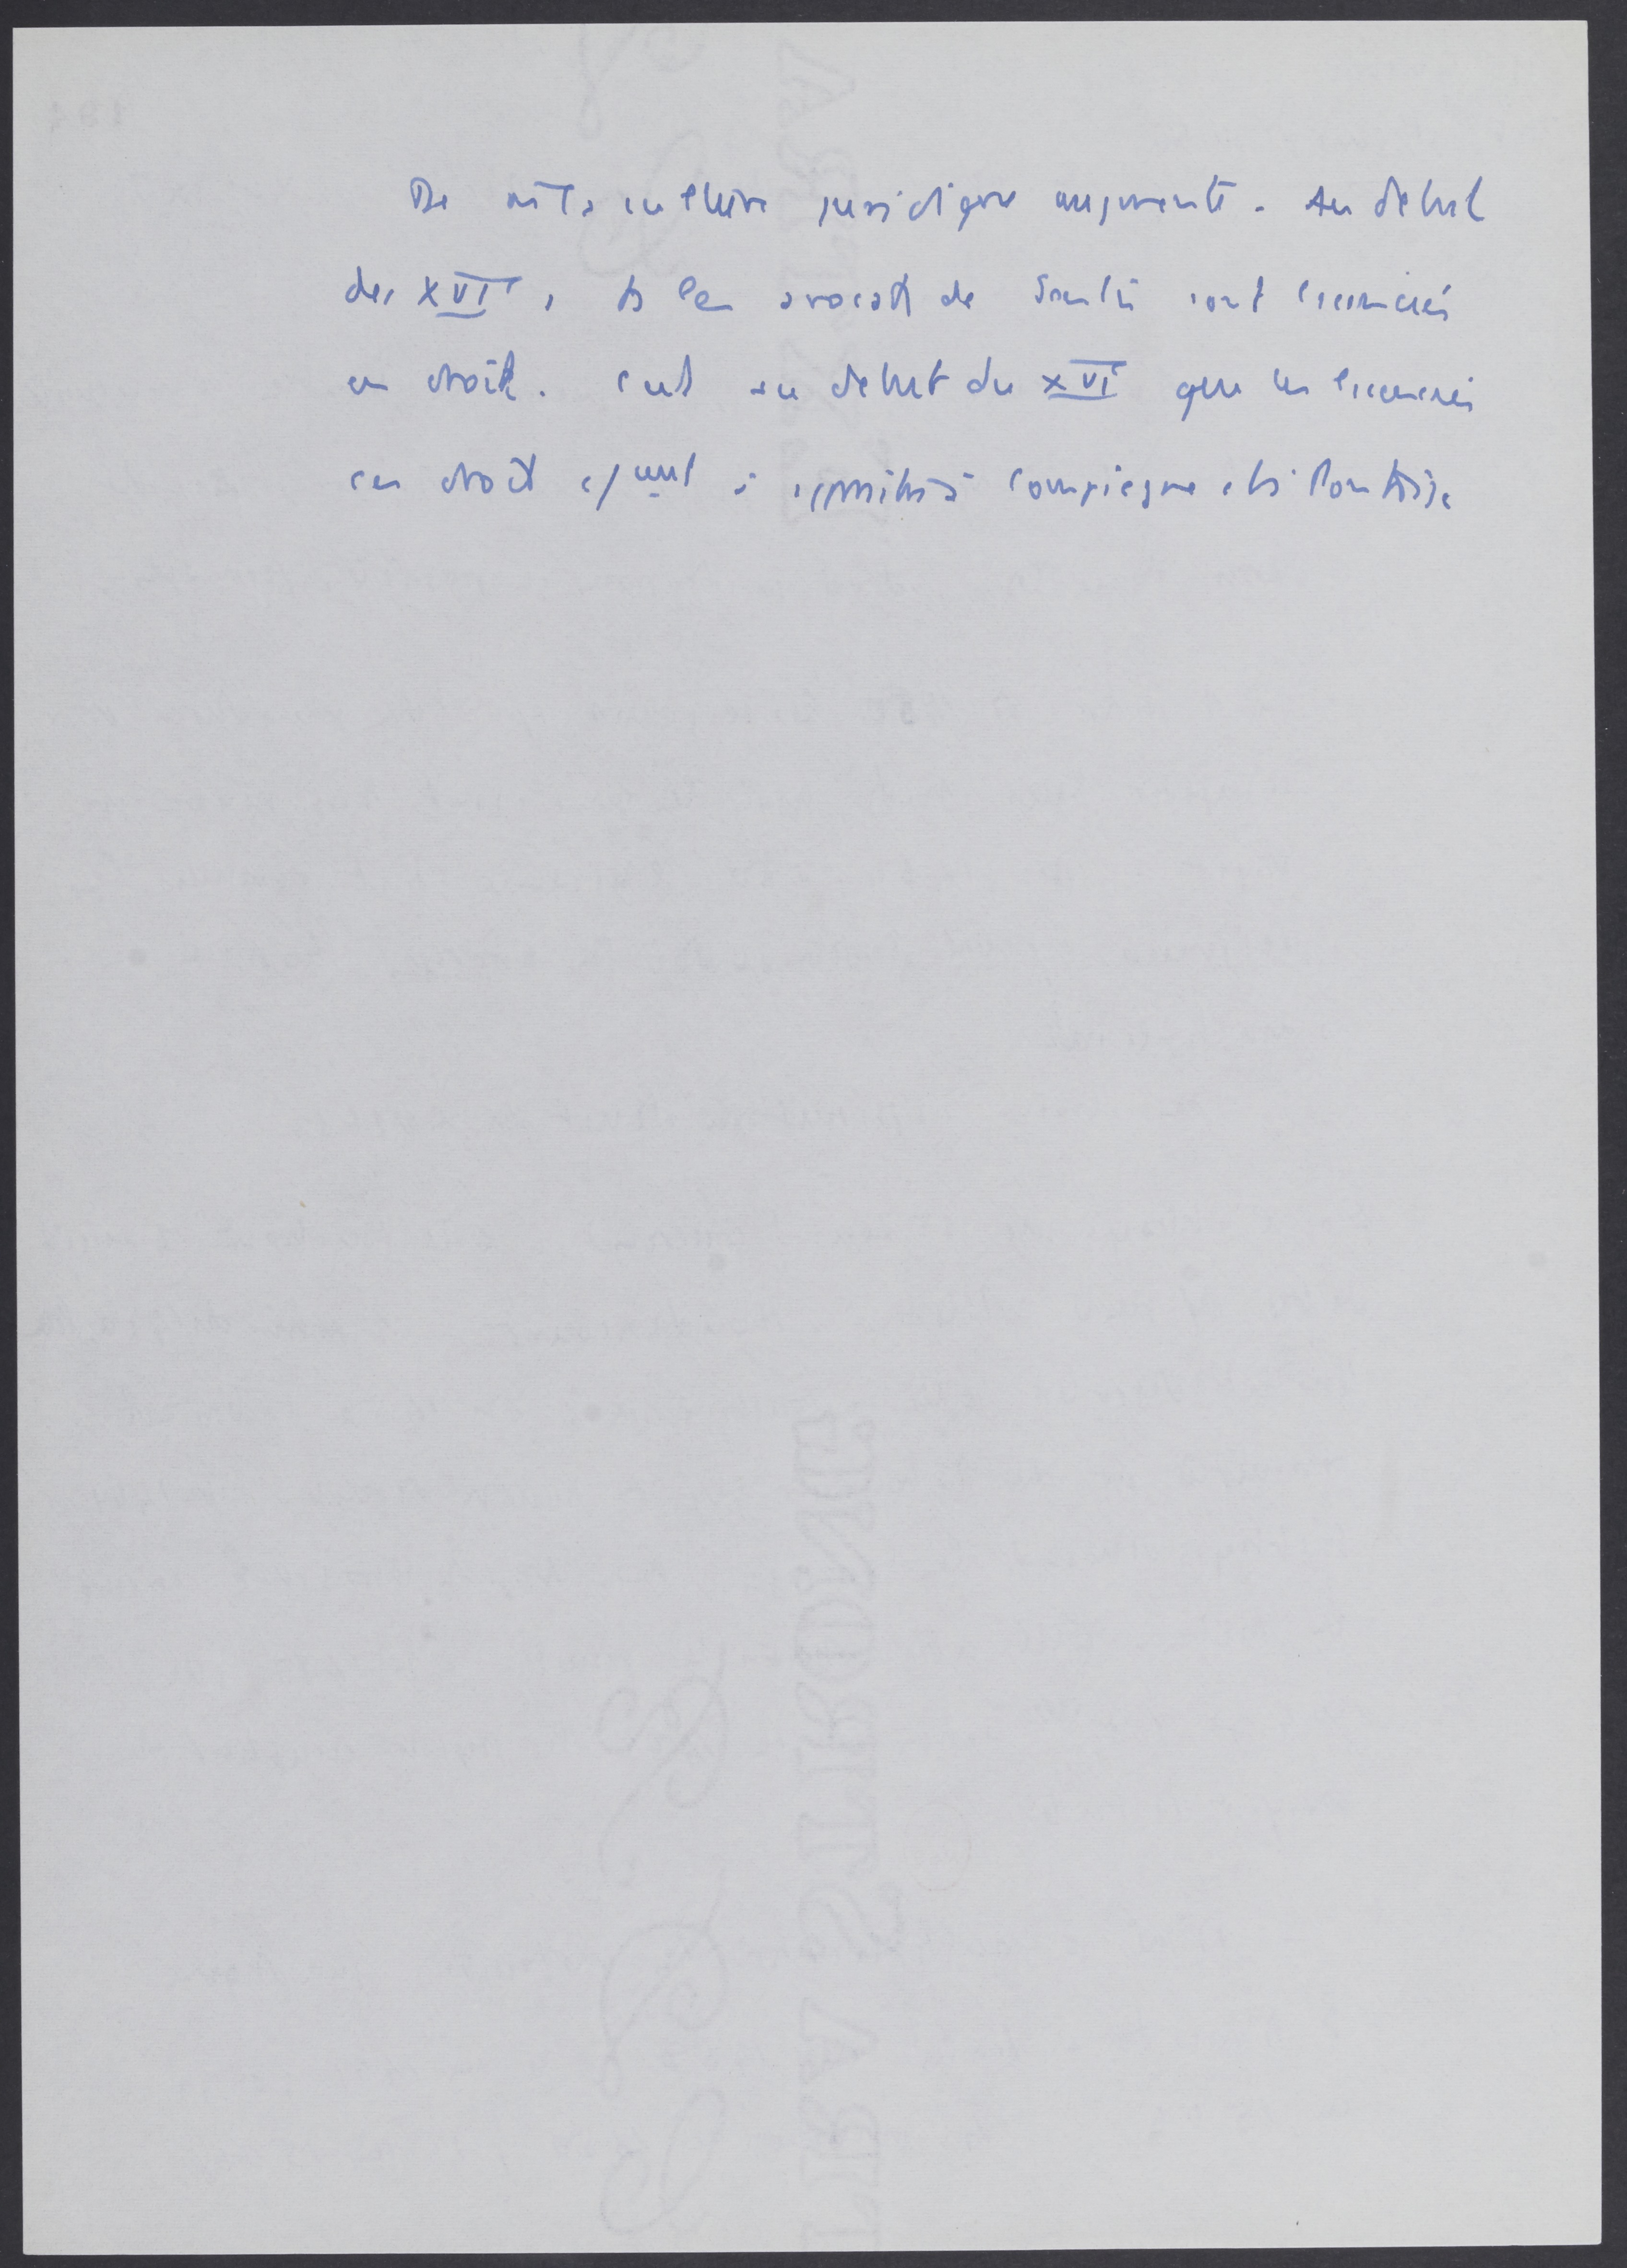 De + la culture juridique augmente. Au debut
du XVIe, ts les avocats de Senlis sont licenciés
en droit. C'est au debut du XVIe que les licenciés
en droit à Compiegne et à Pontoise